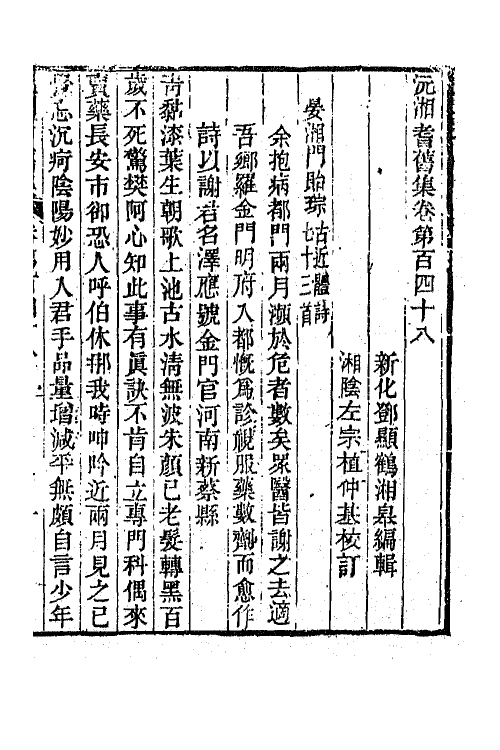 沅湘耆舊集卷第百四十八
新化鄧顯鶴湘皋編輯
湘陰左宗植仲基校訂
晏湘門貽琮古近體詩七十三首
余抱病都門兩月瀕於危者數矣眾醫皆謝之去適
吾鄉羅金門明府入都慨爲診視服藥數劑而愈作
詩以謝君名澤應號金門官河南新蔡縣
青黏漆葉生朝歌上池古水清無波朱顏已老髮轉黑百
歲不死驚樊阿心知此事有眞訣不肯自立專門科偶來
賣藥長安市卻恐人呼伯休那我時呻吟近兩月見之已
忘沉痾陰陽妙用人君手品量增減平無頗自言少年